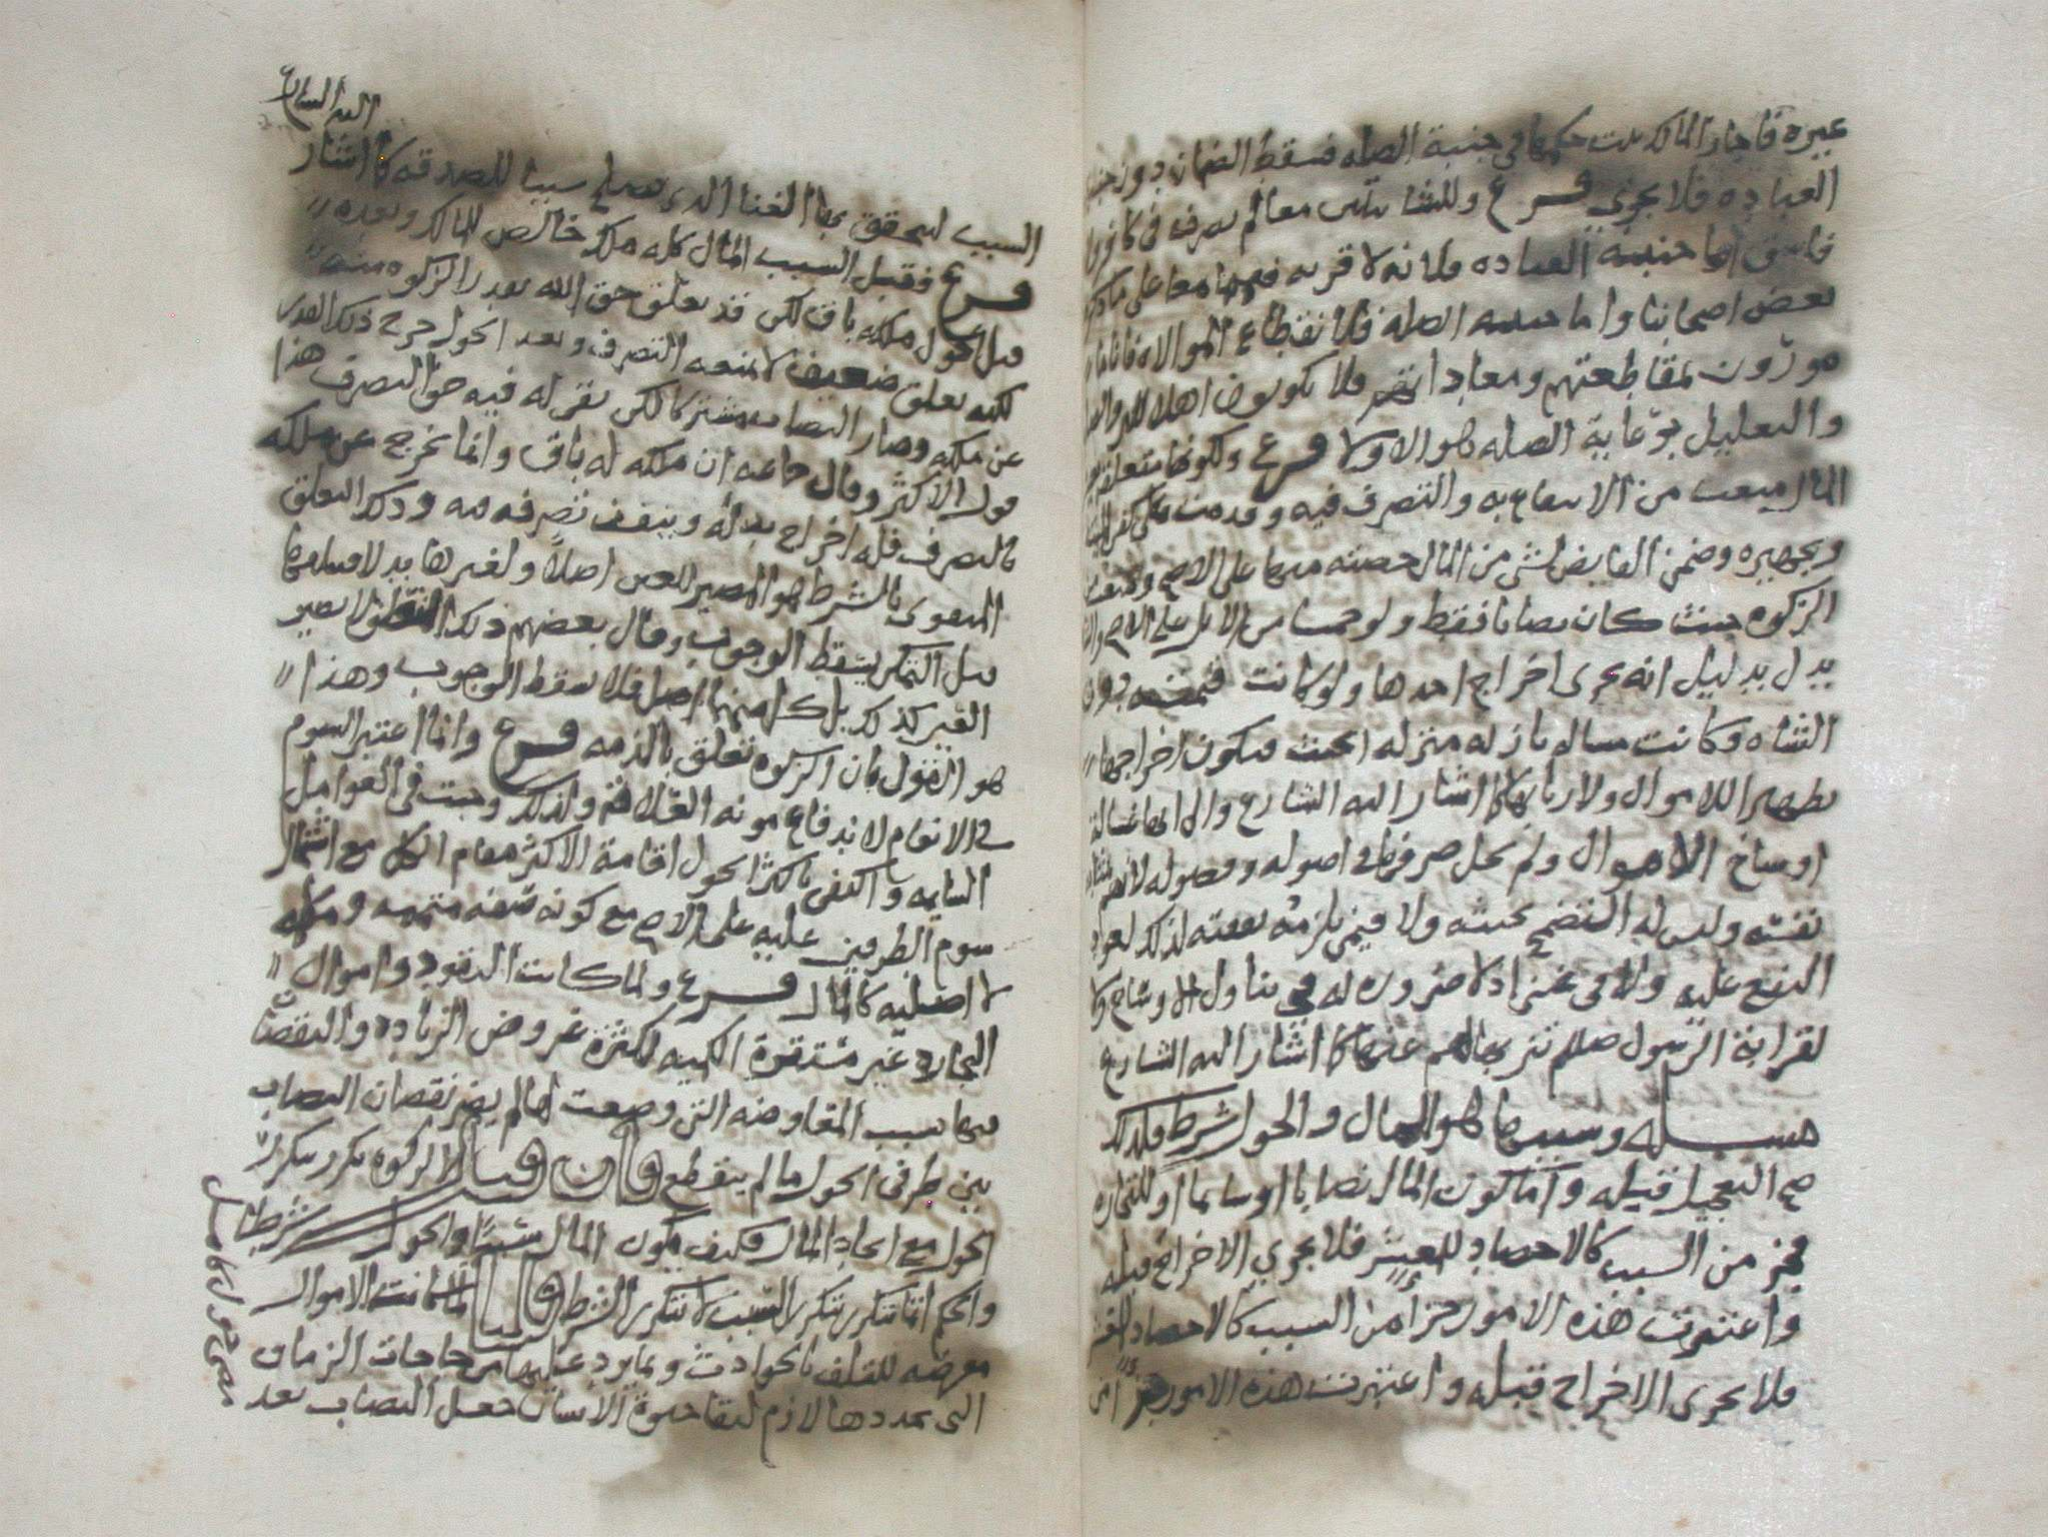 غيره فاجاز المالك حكمها في جنبة الصله فسقط الضمان دون جنبه
العباده فلا يجزي فرع وللشا معا لم تصرف في كافر ولا
فاسق اما جنبه العباده فلانه لا قربه فيهما معا على ما ذكره
بعض اصحابنا واما جنبه الصله فلانقطاع الموالاه فانا
بمقاطعتهم ومعاداتهم فلا يكونون اهلا
والتعليل برعاية الصله هو الاولا فرع ولكونها متعلقه بعين
المال منعت من الانتفاع به والتصرف فيه وقدمت على كفن الميت
وتجهيزه وضمن القابض لشي من المال حصته منها على الاصح ومنعت
الزكوه حيث كان نصابا فقط ولو خمسا من الابل على الاصح
بدل بدليل انه يجزى اخراج احدها ولو كانت قيمته دون
الشاه وكانت نازله منزله الخبث فيكون اخراجها
تطهيرا للاموال ولاربابها كما اشار اليه الشارع والى انها غساله
اوساخ الاموال ولم يحل صرفها في اصوله وفصوله لانهم
نفسه وليس له التضمخ بخبثه ولا فيمن تلزمه نفقته لذلك لعود
النفع عليه ولا في غني اذ لا ضروره له في تناول الاوساخ ولا
لقرابة الرسول صلعم تنزيها لهم عنها كما اشار اليه الشارع
مسئله وسببها هو المال والحول شرط فلذلك
صح التعجيل قبله واما كون المال نصابا او سايما او للتجاره
فجز من السبب كالاحصاد للعشر فلا يجزي الاخراج قبله
واعتبرت هذه الامور جزاً من السبب كالاحصاد للعشر
فلا يجزى الاخراج قبله واعتبرت هذه الامور جزاً من
السبب ليتحقق بها الغنا الذى يصلح سببا للصدقه كما اشار
اليه الشارع
فرع فقيل السبب المال كله ملك خالص للمالك وبعده
قبل الحول ملكه باق لكن قد تعلق حق الله بقدر الزكوه منه
لكنه تعلق ضعيف لا يمنعه التصرف وبعد الحول خرج ذلك القدر
عن ملكه وصار النصاب مشتركا لكن بقي له فيه حق التصرف هذا
قول الاكثر وقال جماعه ان ملكه له باق وانما يخرج عن ملكه
بالتصرف فله اخراج بدله وينفذ تصرفه فيه وذلك التعلق
المقوى بالشرط هو المصير للعين اصلا ولغيرها بدلا فتلفها
قبل التمكن يسقط الوجوب وقال بعضهم ذلك التعلق لا يصير
الغير كذلك بل كل منهما اصل فلا يسقط الوجوب وهذا
هو القول بان الزكوه تعلق بالذمه فرع وانما اعتبر السوم
في الانعام لاندفاع مونه العلافه ولذلك وجبت في العوامل
السايمه واكتفى باكثر الحول اقامة الاكثر مقام الكل مع اشتمال
سوم الطرفين عليه على الاصح مع كونه صفه متممه ومكمله
لا اصليه كالمال فرع ولما كانت النقود واموال
التجاره غير مستقرة الكميه لكثرة عروض الزياده والنقصان
فيها بسبب المعاوضه التي وضعت لها لم يضر نقصان النصاب
بين طرفي الحول ما لم ينقطع فان قيل الزكوه تكرر بتكرر
الحول مع اتحاد المال فكيف يكون المال سببا والحول شرطا
والحكم انما يتكرر بتكرر السبب لا بتكرر الشرط قلنا لما كانت الاموال
معرضه للتلف بالحوادث وبما يرد عليها من حاجات الزمان
التى تجددها لازم لبقا حيوة الانسان جعل النصاب بعد
مضى حول كامل